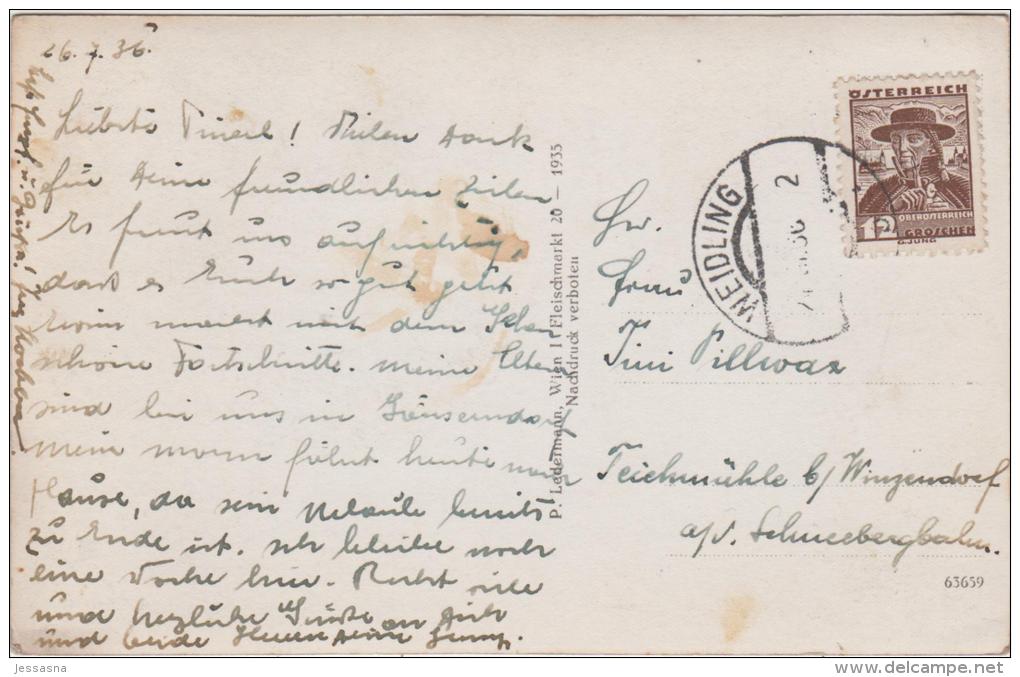 26.7.36.
Liebste Tinerl! Vielen Dank
für Deine freundlichen Zeilen
Es freut uns aufrichtig,
dass es Euch so gut geht
wenn macht mit dem
schöne Fortschritte. meine Eltern
sind bei uns in Gänserndorf
mein Mann fährt heute nach
Hause, da sein Urlaub bereits
zu Ende ist. Ich bleibe noch
eine Woche hier. Recht viele
und herzliche Grüße an Dich
und beide Herren Deine
P. Ledermann, Wien I Fleischmarkt 20 — 1935
Nachdruck verboten
ÖSTERREICH
OBERÖSTERREICH
12 GROSCHEN
G.JUNG
WEIDLING
2
Frau
Tini Pillwax
Teichmühle b/ Winzendorf
a/d. Schneebergbahn.
63659
jessasna
http://www.delcampe.net